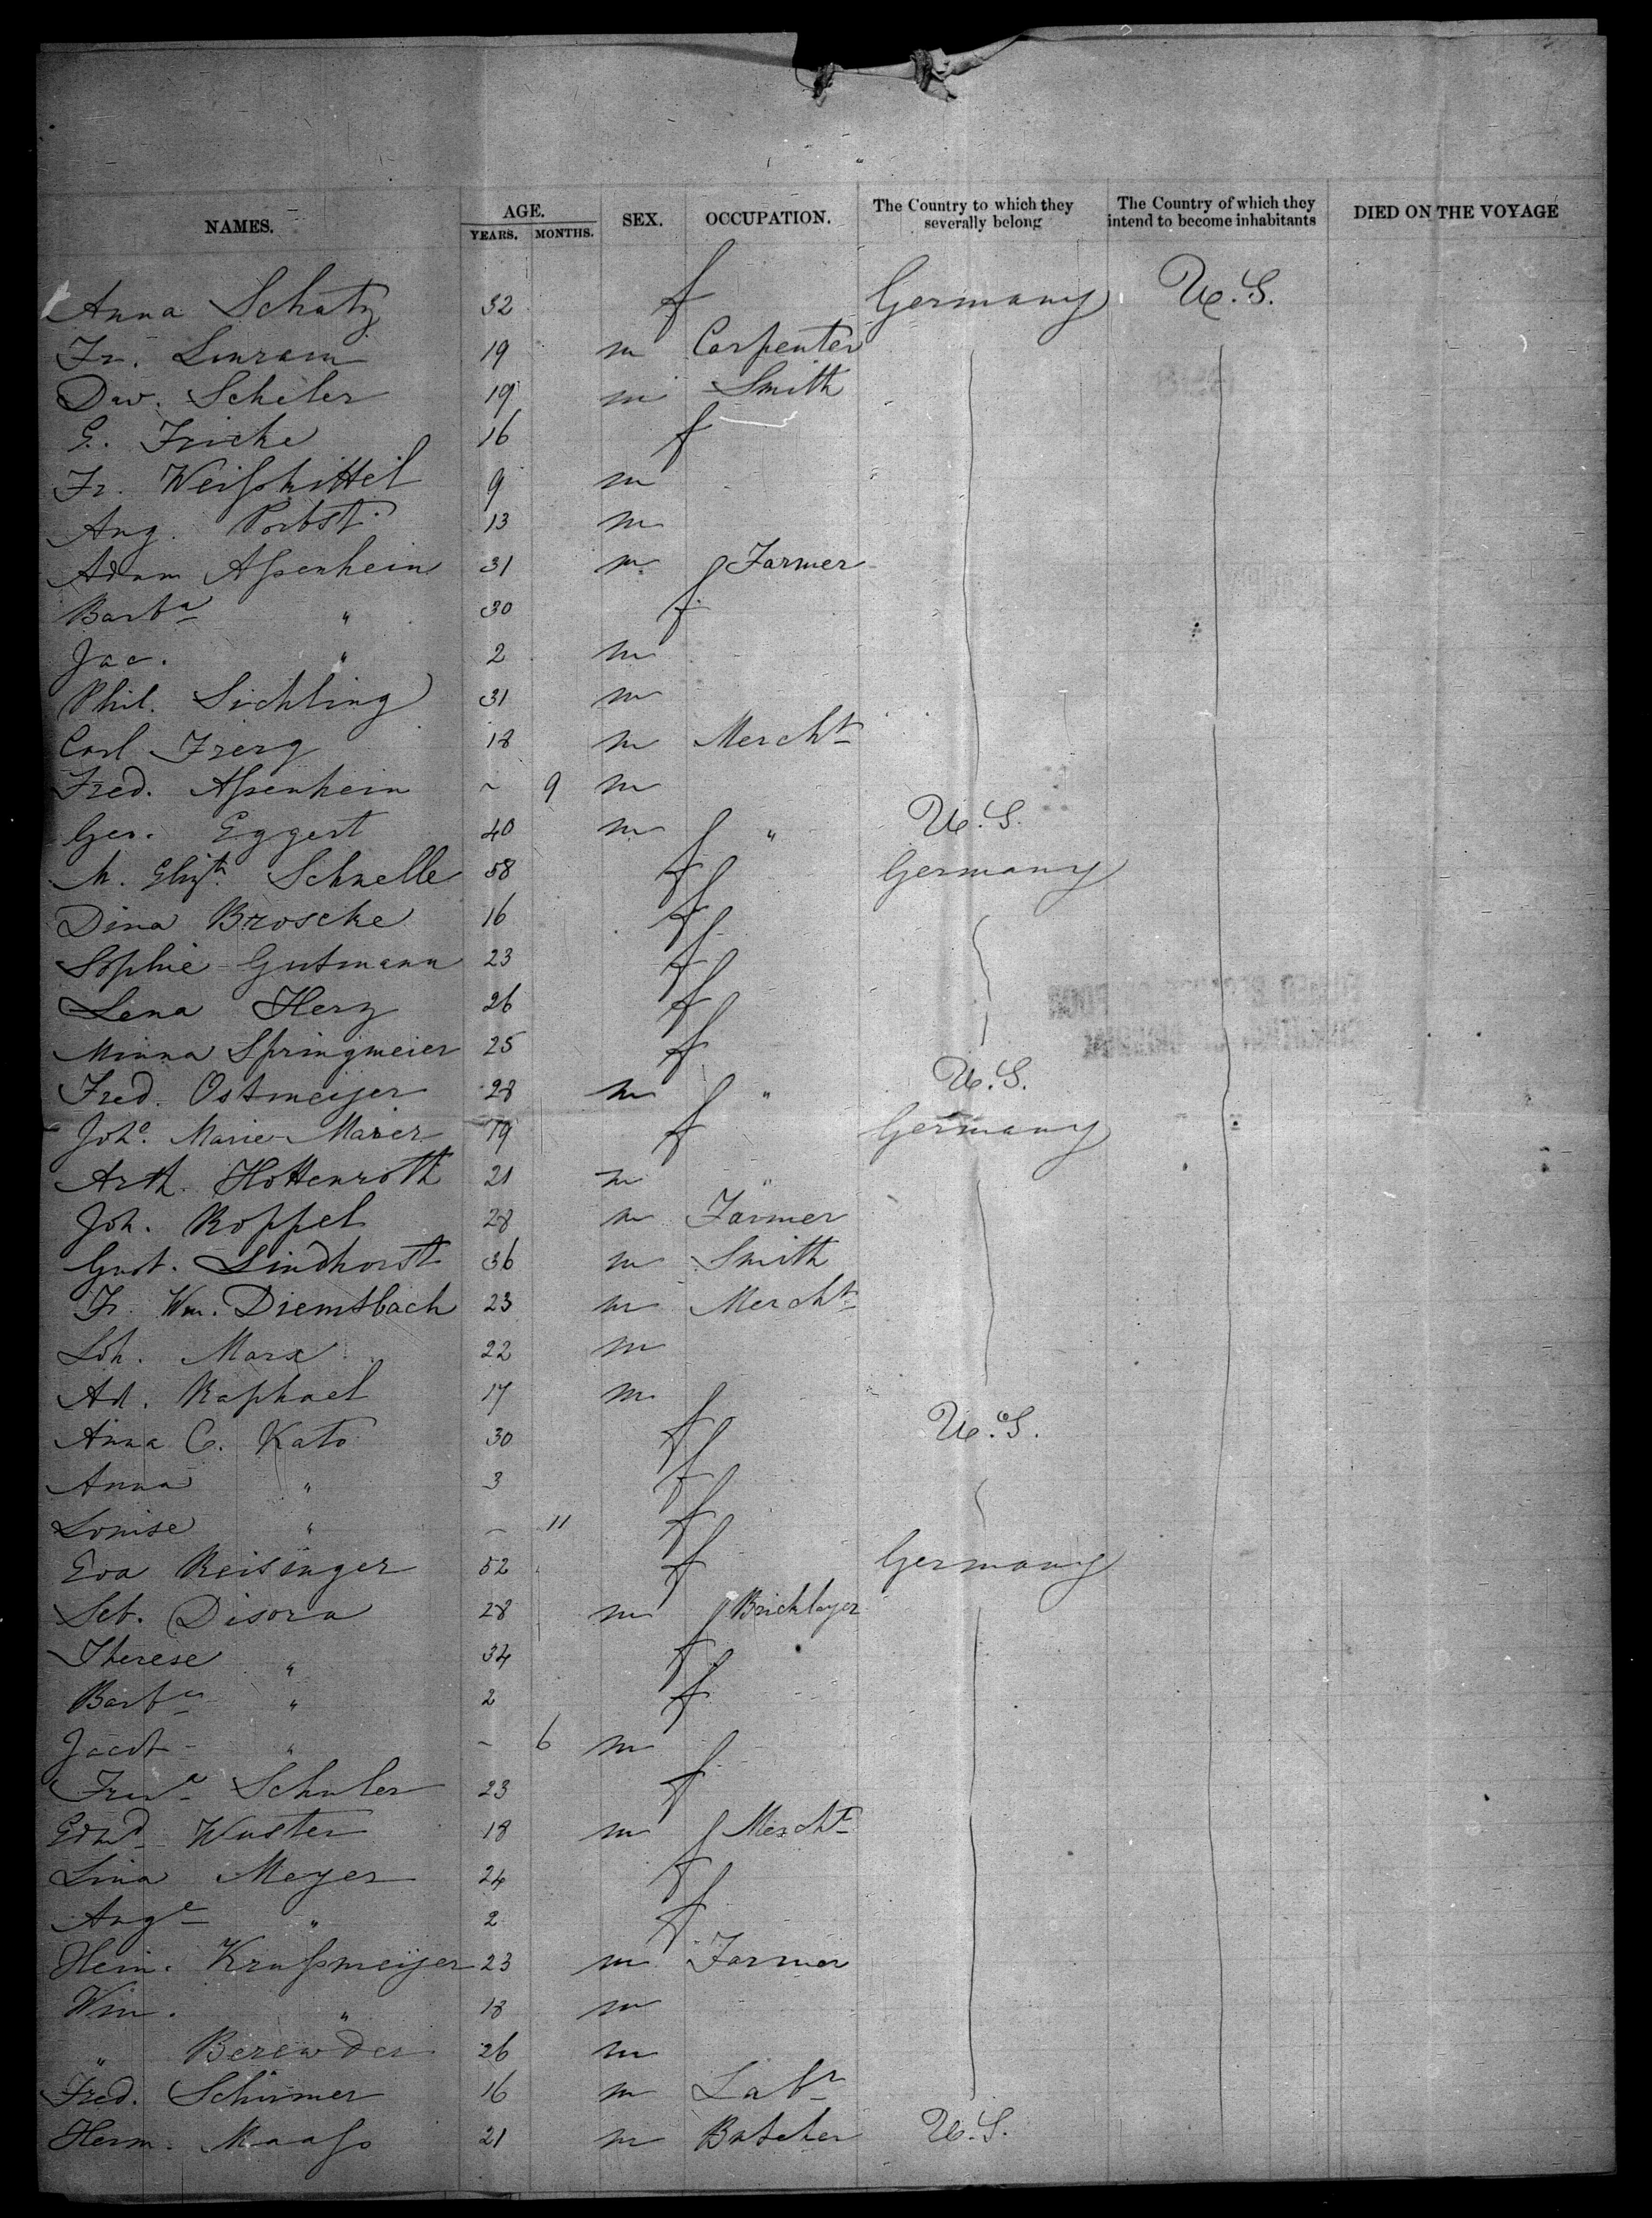 NAMES. AGE. YEARS. MONTHS. SEX. OCCUPATION. The Country to which they severally belong The Country of which they intend to become inhabitants DIED ON THE VOYAGE
Anna Schatz 32 f Germany U.S.
Fr. Linram 19 m Carpenter
Dav. Scheler 19 m Smith
G. Fricke 16 f
Fr. Weißkittel 9 m
Aug. Porbst 13 m
Adam Aßenheim 31 m Farmer
Barba " 30 f
Jac. " 2 m
Phil. Sichling 31 m
Carl Frerg 18 m Mercht
Fred. Aßenheim ~ 9 m
Geo. Eggert 40 m " U.S.
M. Elizth. Schnelle 58 f Germany
Dina Broscke 16 f
Sophie Gutmann 23 f
Lena Herz 26 f
Minna Springmeier 25 f
Fred. Ostmeijer 28 m " U.S.
Johe. Marie Maier 19 f Germany
Arth. Hottenroth 21 m "
Joh. Roppel 28 m Farmer
Gust. Lindhorst 36 m Smith
Fr. Wm. Diemsbach 23 m Mercht
Loh. Marx 22 m
Ad. Raphael 17 m
Anna C. Kato 30 f U.S.
Anna " 3 f
Louise " ~ 11 f
Eva Reisinger 52 f Germany
Seb. Disora 28 m Bricklayer
Therese " 34 f
Barba " 2 f
Jacob " ~ 6 m
Schuler 23 f
Edmd Wuster 18 m Mercht
Lina Meyer 24 f
Auge " 2 f
Hein. Krußmeijer 23 m Farmer
Wm. " 18 m
" Berewder 26 m
Fred. Schirmer 16 m Labr
Herm. Maaß 21 m Butcher U.S.